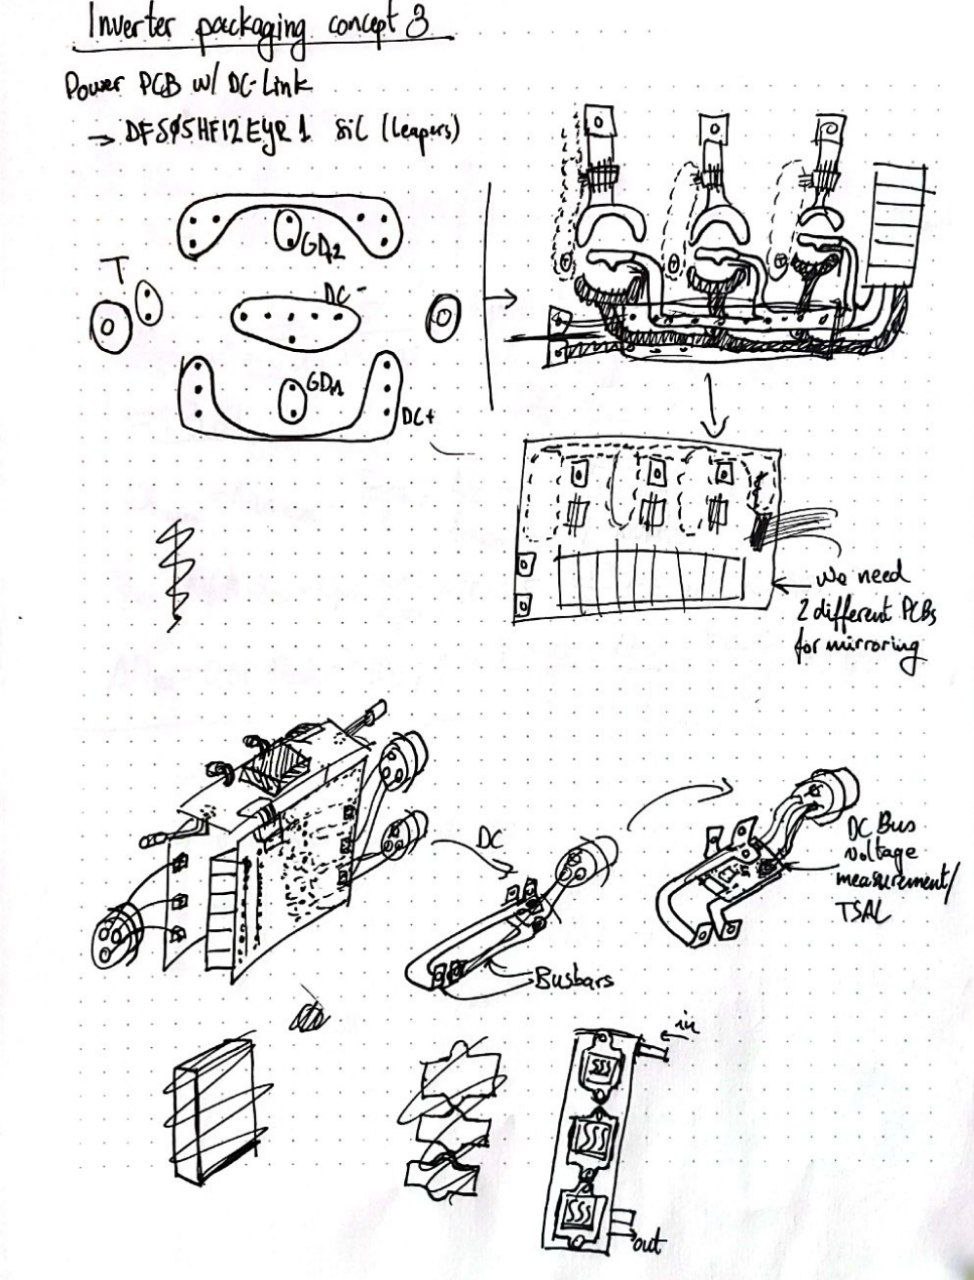 Inverter packaging concept 3
Power PCB w/ DC-Link
→ DFS05HF12EYR1 SiC (Leapers)
GD2
T
DC-
GD1
DC+
We need
2 different PCBs
for mirroring
DC
DC Bus
voltage
measurement/
TSAL
Busbars
in
out